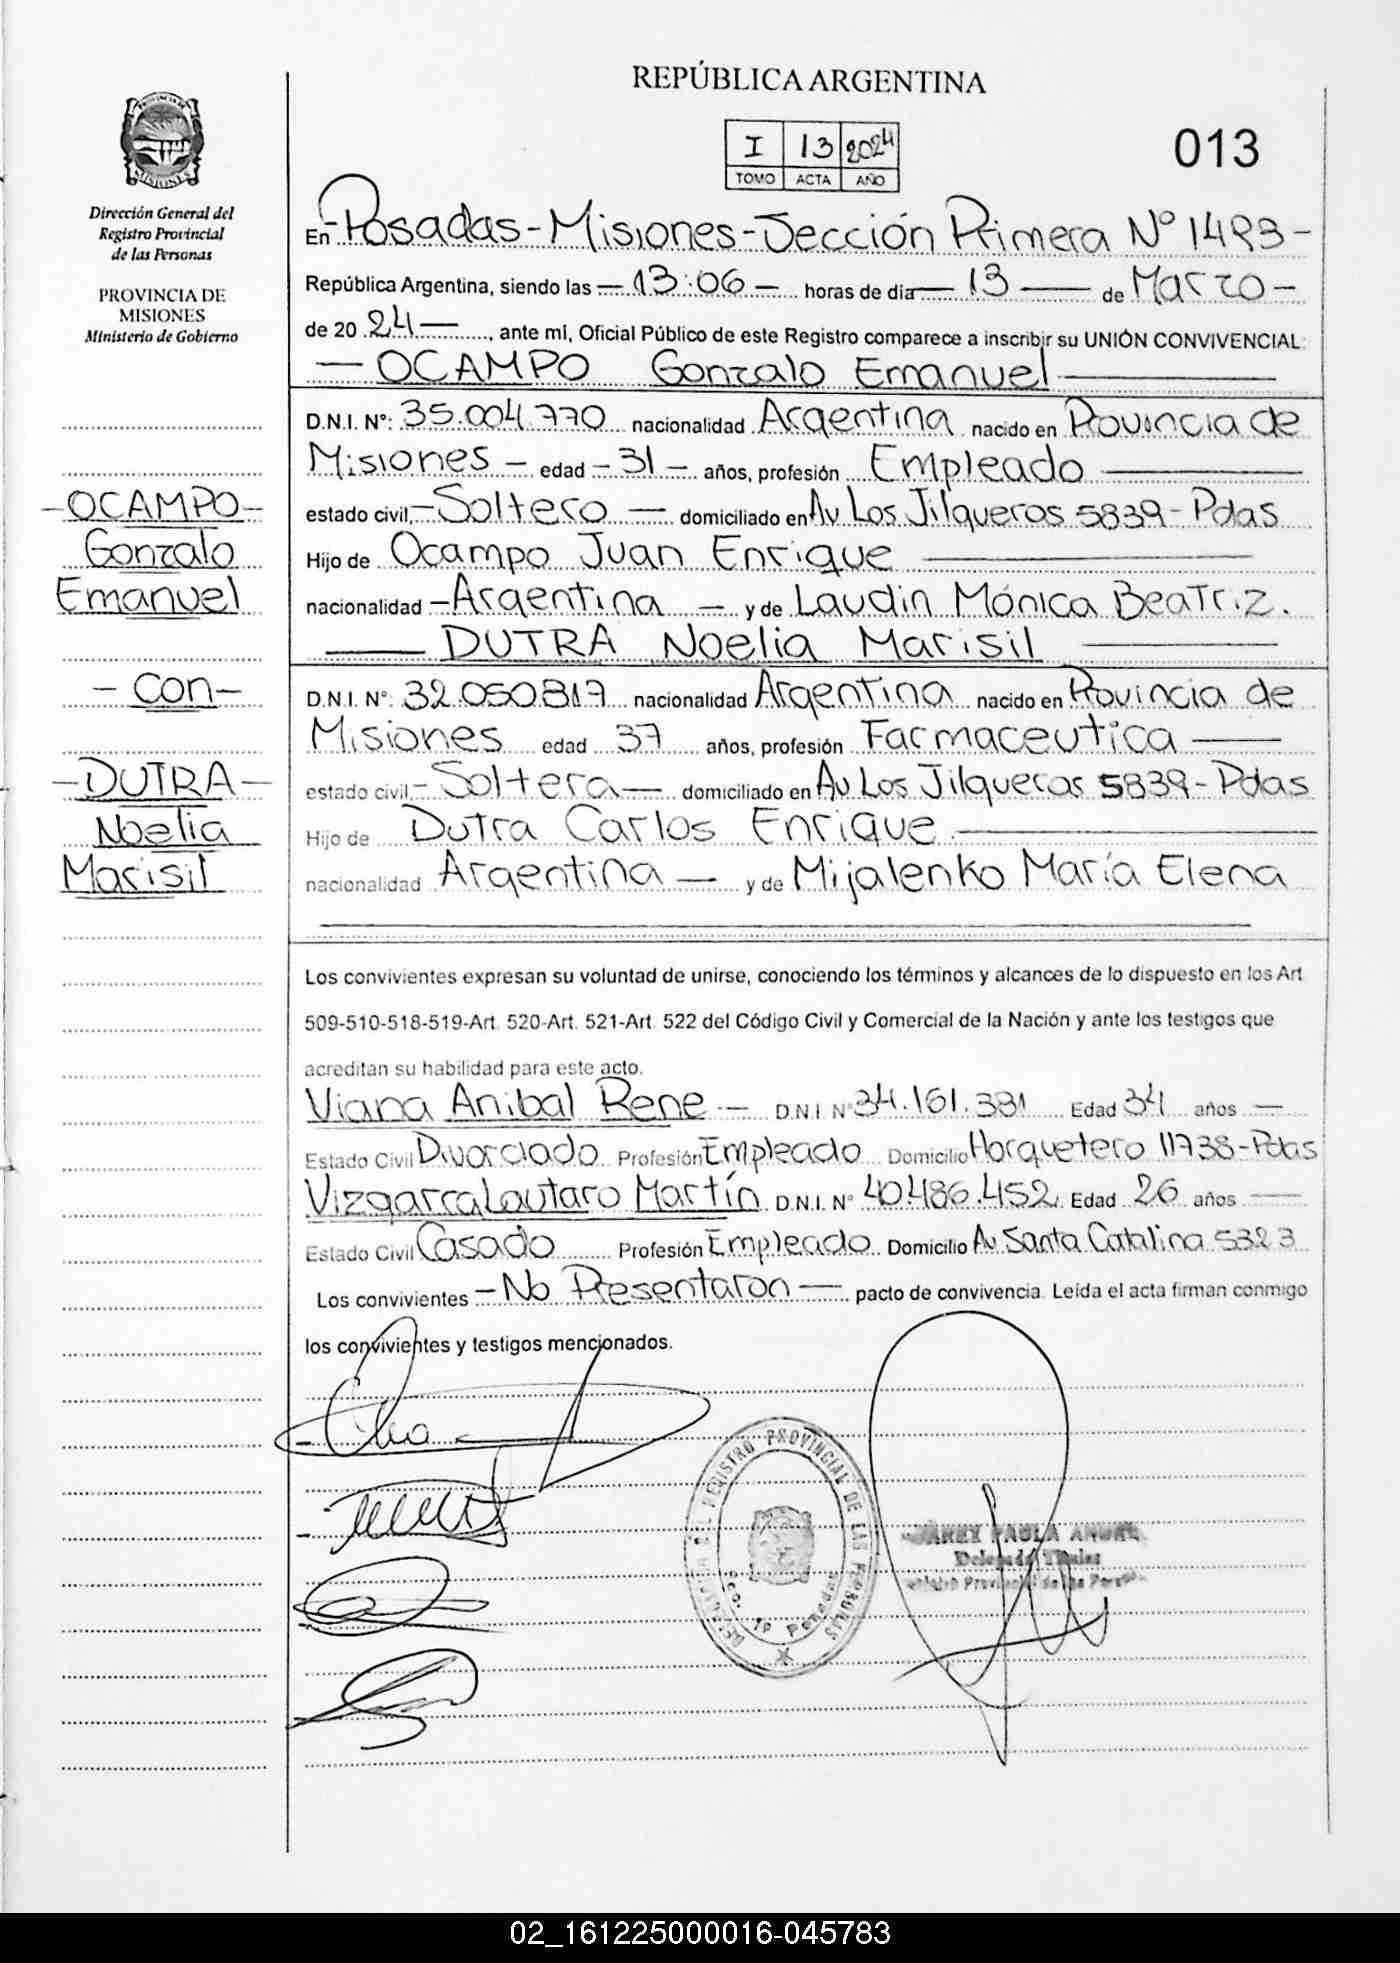 REPÚBLICA ARGENTINA
I 13 2024
TOMO ACTA AÑO
013
PROVINCIA DE MISIONES
Dirección General del
Registro Provincial
de las Personas
PROVINCIA DE
MISIONES
Ministerio de Gobierno
- OCAMPO -
Gonzalo
Emanuel
- Con -
- DUTRA -
Noelia
Marisil
En - Posadas - Misiones - Sección Primera N° 1493 -
República Argentina, siendo las - 13:06 - horas de dia - 13 - de Marzo -
de 20 24 - , ante mi, Oficial Público de este Registro comparece a inscribir su UNIÓN CONVIVENCIAL:
- OCAMPO Gonzalo Emanuel
D.N.I. N°: 35.004.770 nacionalidad Argentina nacido en Provincia de
Misiones - edad - 31 - años, profesión Empleado
estado civil - Soltero - domiciliado en Av Los Jilgueros 5839 - Pdas
Hijo de Ocampo Juan Enrique
nacionalidad - Argentina - y de Laudin Mónica Beatriz.
DUTRA Noelia Marisil
D.N.I. N°: 32.050.817 nacionalidad Argentina nacido en Provincia de
Misiones edad 37 años, profesión Farmaceutica
estado civil - Soltera - domiciliado en Av Los Jilgueros 5839 - Pdas
Hijo de Dutra Carlos Enrique
nacionalidad Argentina - y de Mijalenko María Elena
Los convivientes expresan su voluntad de unirse, conociendo los términos y alcances de lo dispuesto en los Art
509-510-518-519-Art. 520-Art. 521-Art. 522 del Código Civil y Comercial de la Nación y ante los testigos que
acreditan su habilidad para este acto.
Viana Anibal Rene - D.N.I. N° 34.161.381 Edad 34 años -
Estado Civil Divorciado Profesión Empleado Domicilio Horquetero 11738 - Pdas
Vizgarra Lautaro Martín D.N.I. N° 40.486.452 Edad 26 años
Estado Civil Casado Profesión Empleado Domicilio Av Santa Catalina 5323
Los convivientes - No Presentaron - pacto de convivencia. Leída el acta firman conmigo
los convivientes y testigos mencionados.
REGISTRO PROVINCIAL DE LAS PERSONAS
PAULA
02_161225000016-045783